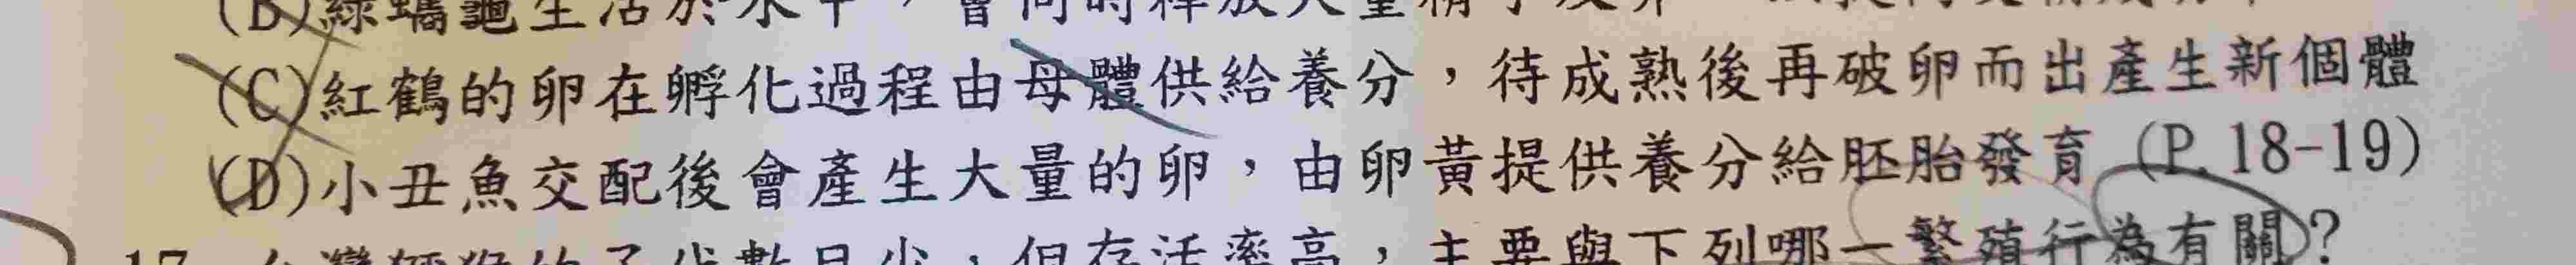 (B)綠蠵龜生活於水中，會同時釋放大量精子及卵
(C)紅鶴的卵在孵化過程由母體供給養分，待成熟後再破卵而出產生新個體
(D)小丑魚交配後會產生大量的卵，由卵黃提供養分給胚胎發育 (P.18-19)
17 台灣獼猴的子代數目少，但存活率高，主要與下列哪一繁殖行為有關？